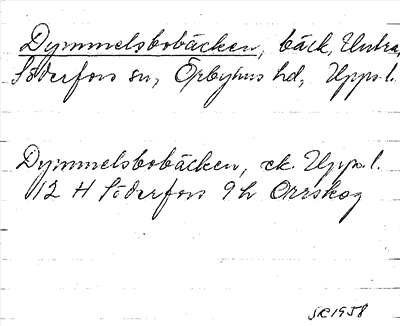 Dymmelsbobäcken, bäck, Untra,
Söderfors sn, Örbyhus hd, Upps. l.
Dymmelsbobäcken, ek. Upps. l.
12 H Söderfors 9 h Orrskog
1958